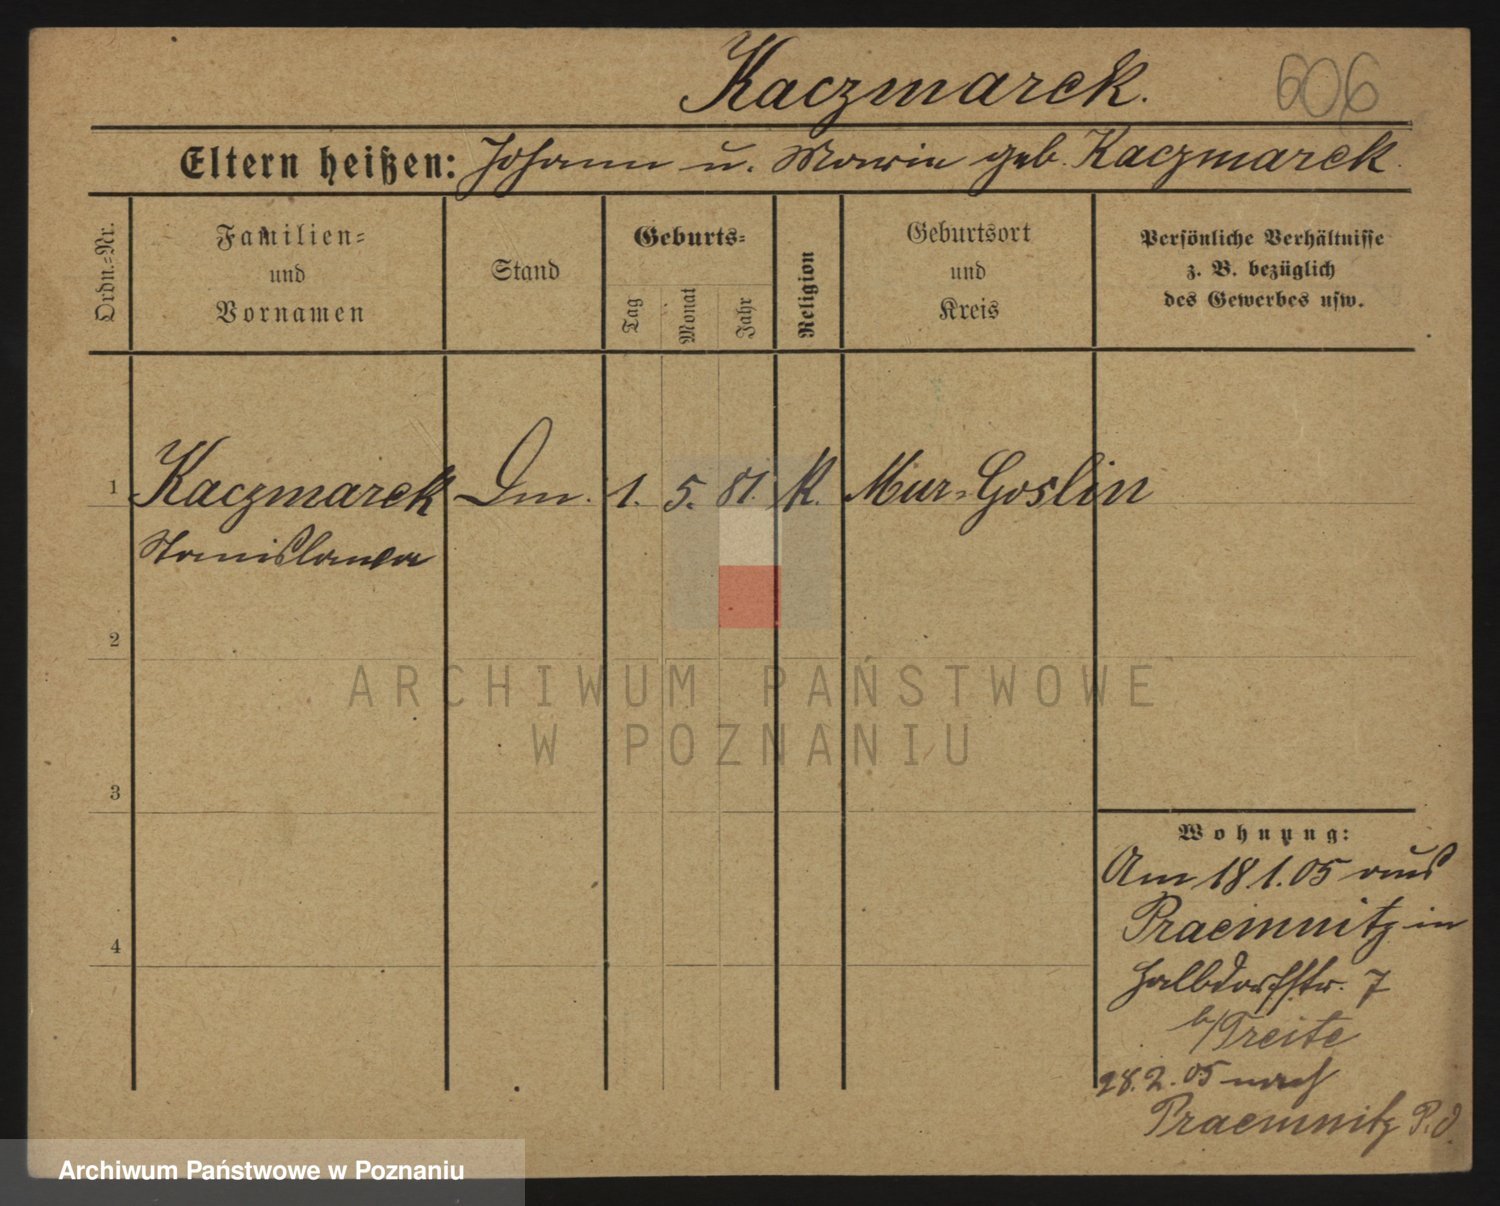 Kaczmarek. 606
Eltern heißen: Johann u. Marie geb. Kaczmarek.
Ordn.-Nr.
Familien-
und
Vornamen
Stand
Geburts-
Tag
Monat
Jahr
Religion
Geburtsort
und
Kreis
Persönliche Verhältnisse
z. B. bezüglich
des Gewerbes usw.
1 Kaczmarek Dm. 1. 5. 81. K. Mur-Goslin
Stanislawa
2
3
4
Wohnung:
Am 18.1.05 aus
Praemnitz in
Halbdorfstr. 7
b/Treite
28.2.05 nach
Praemnitz P.O.
ARCHIWUM PAŃSTWOWE
W POZNANIU
Archiwum Państwowe w Poznaniu